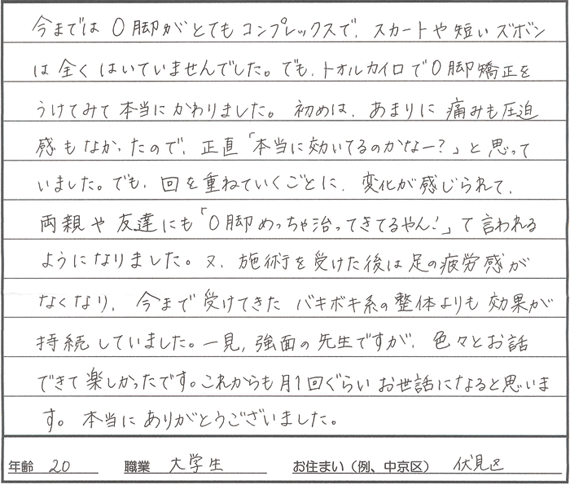 今までは O脚がとてもコンプレックスで、スカートや短いズボン
は全くはいていませんでした。でも、トオルカイロでO脚矯正を
うけてみて本当にかわりました。初めは、あまりに痛みも圧迫
感もなかったので、正直「本当に効いてるのかなー?」と思って
いました。でも、回を重ねていくごとに、変化が感じられて、
両親や友達にも「O脚めっちゃ治ってきてるやん!」て言われる
ようになりました。又、施術を受けた後は足の疲労感が
なくなり、今まで受けてきた バキボキ系の整体よりも効果が
持続していました。一見、強面の先生ですが、色々とお話
できて楽しかったです。これからも月1回ぐらいお世話になると思いま
す。本当にありがとうございました。
年齢 20 職業 大学生 お住まい(例、中京区) 伏見区